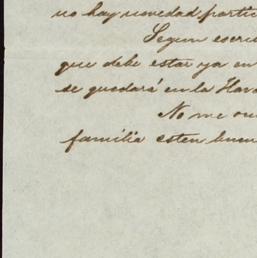 no hay novedad partic
Segun escri
que debe estar ya en
se quedará en la Hava
No me ou
familia esten buen